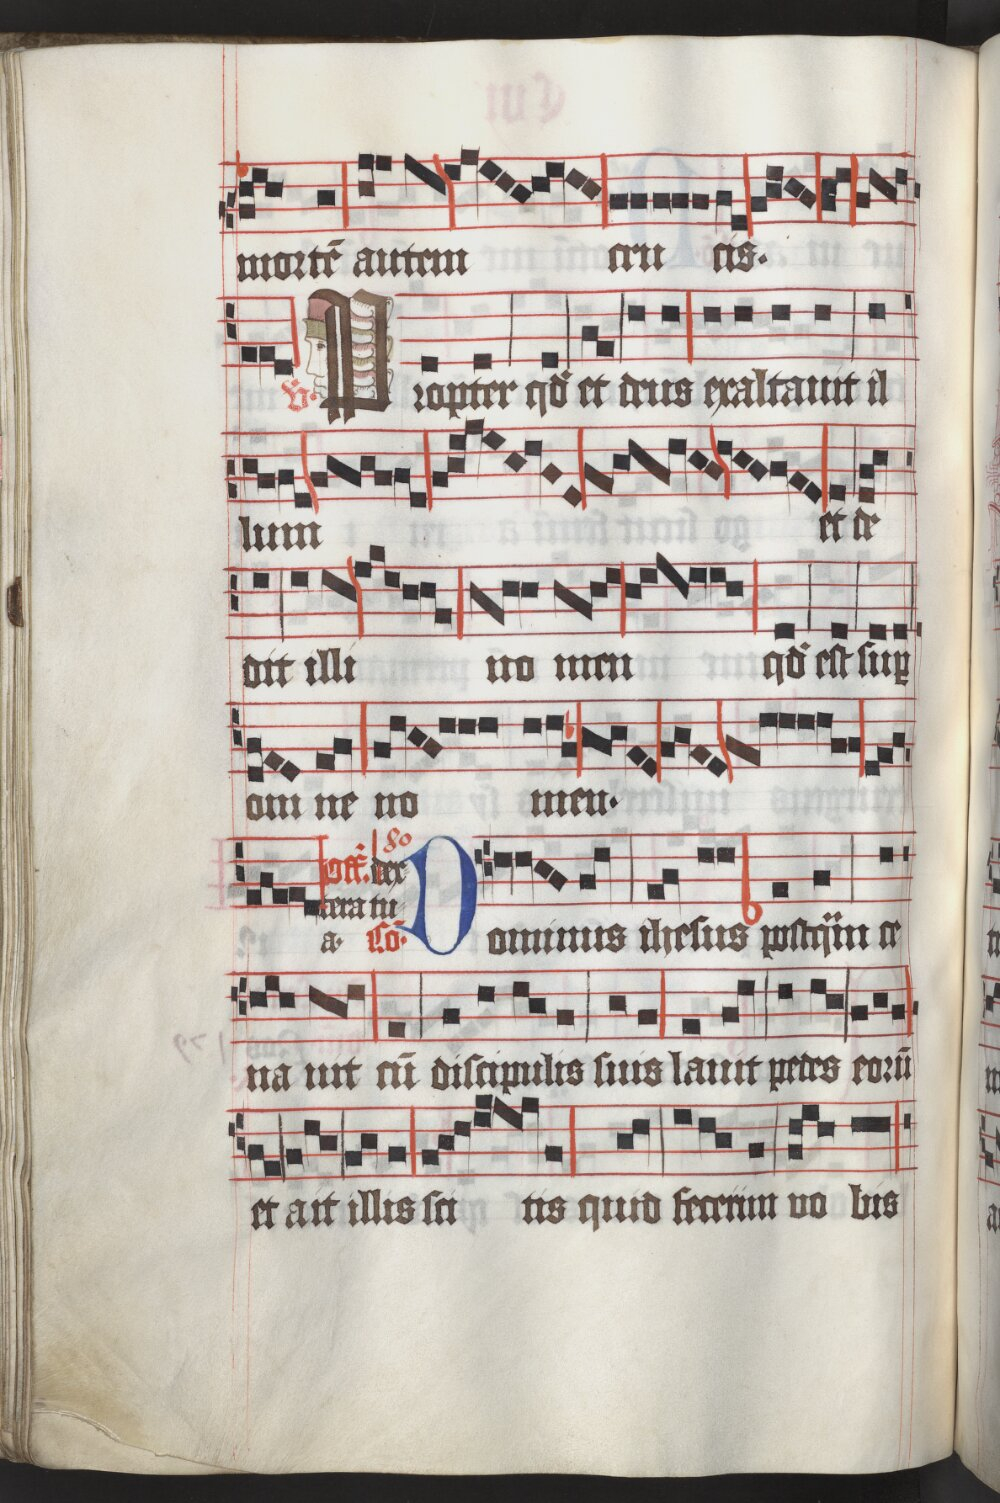 mortē autem cru cis.
V. Propter qđ et deus exaltauit il
lum et de
dit illi no men qđ est suꝑ
om ne no men.
Off. dex 80
tera tu
a. Cō. Dominus ihesus postq̄m ce
na uit cū discipulis suis lauit pedes eorū
et ait illis sci tis quid fecerim uo bis